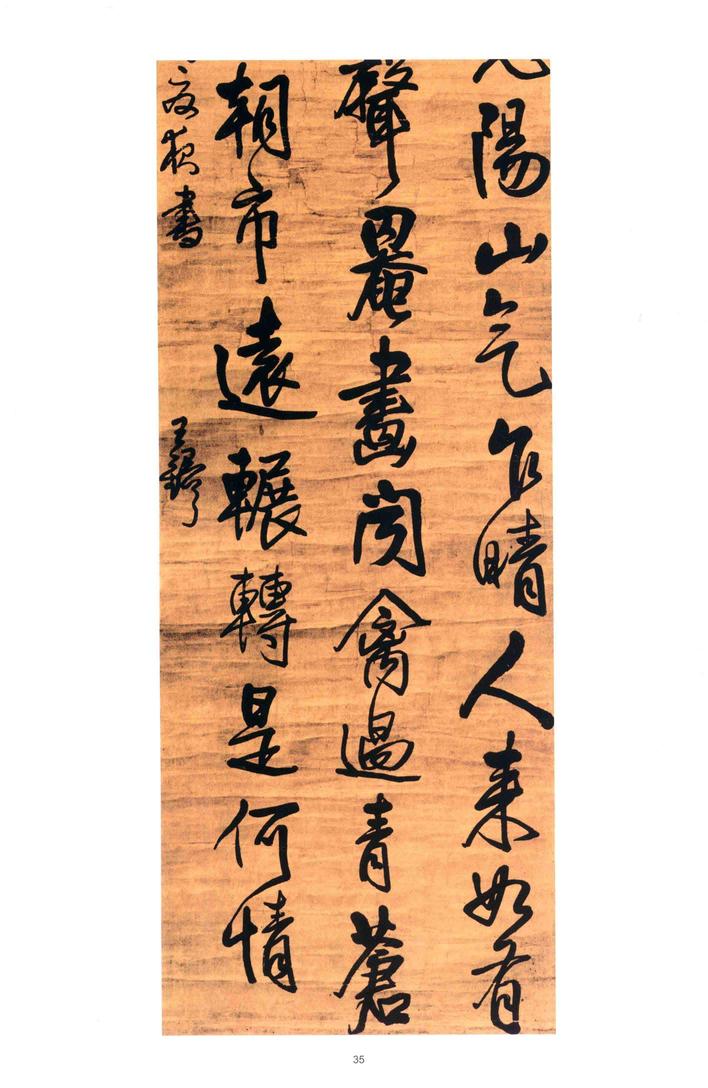 陽山气乍晴人来如有
聲罨畫閃禽過青蒼
朝市遠輾轉是何情
夜書
王鐸
35